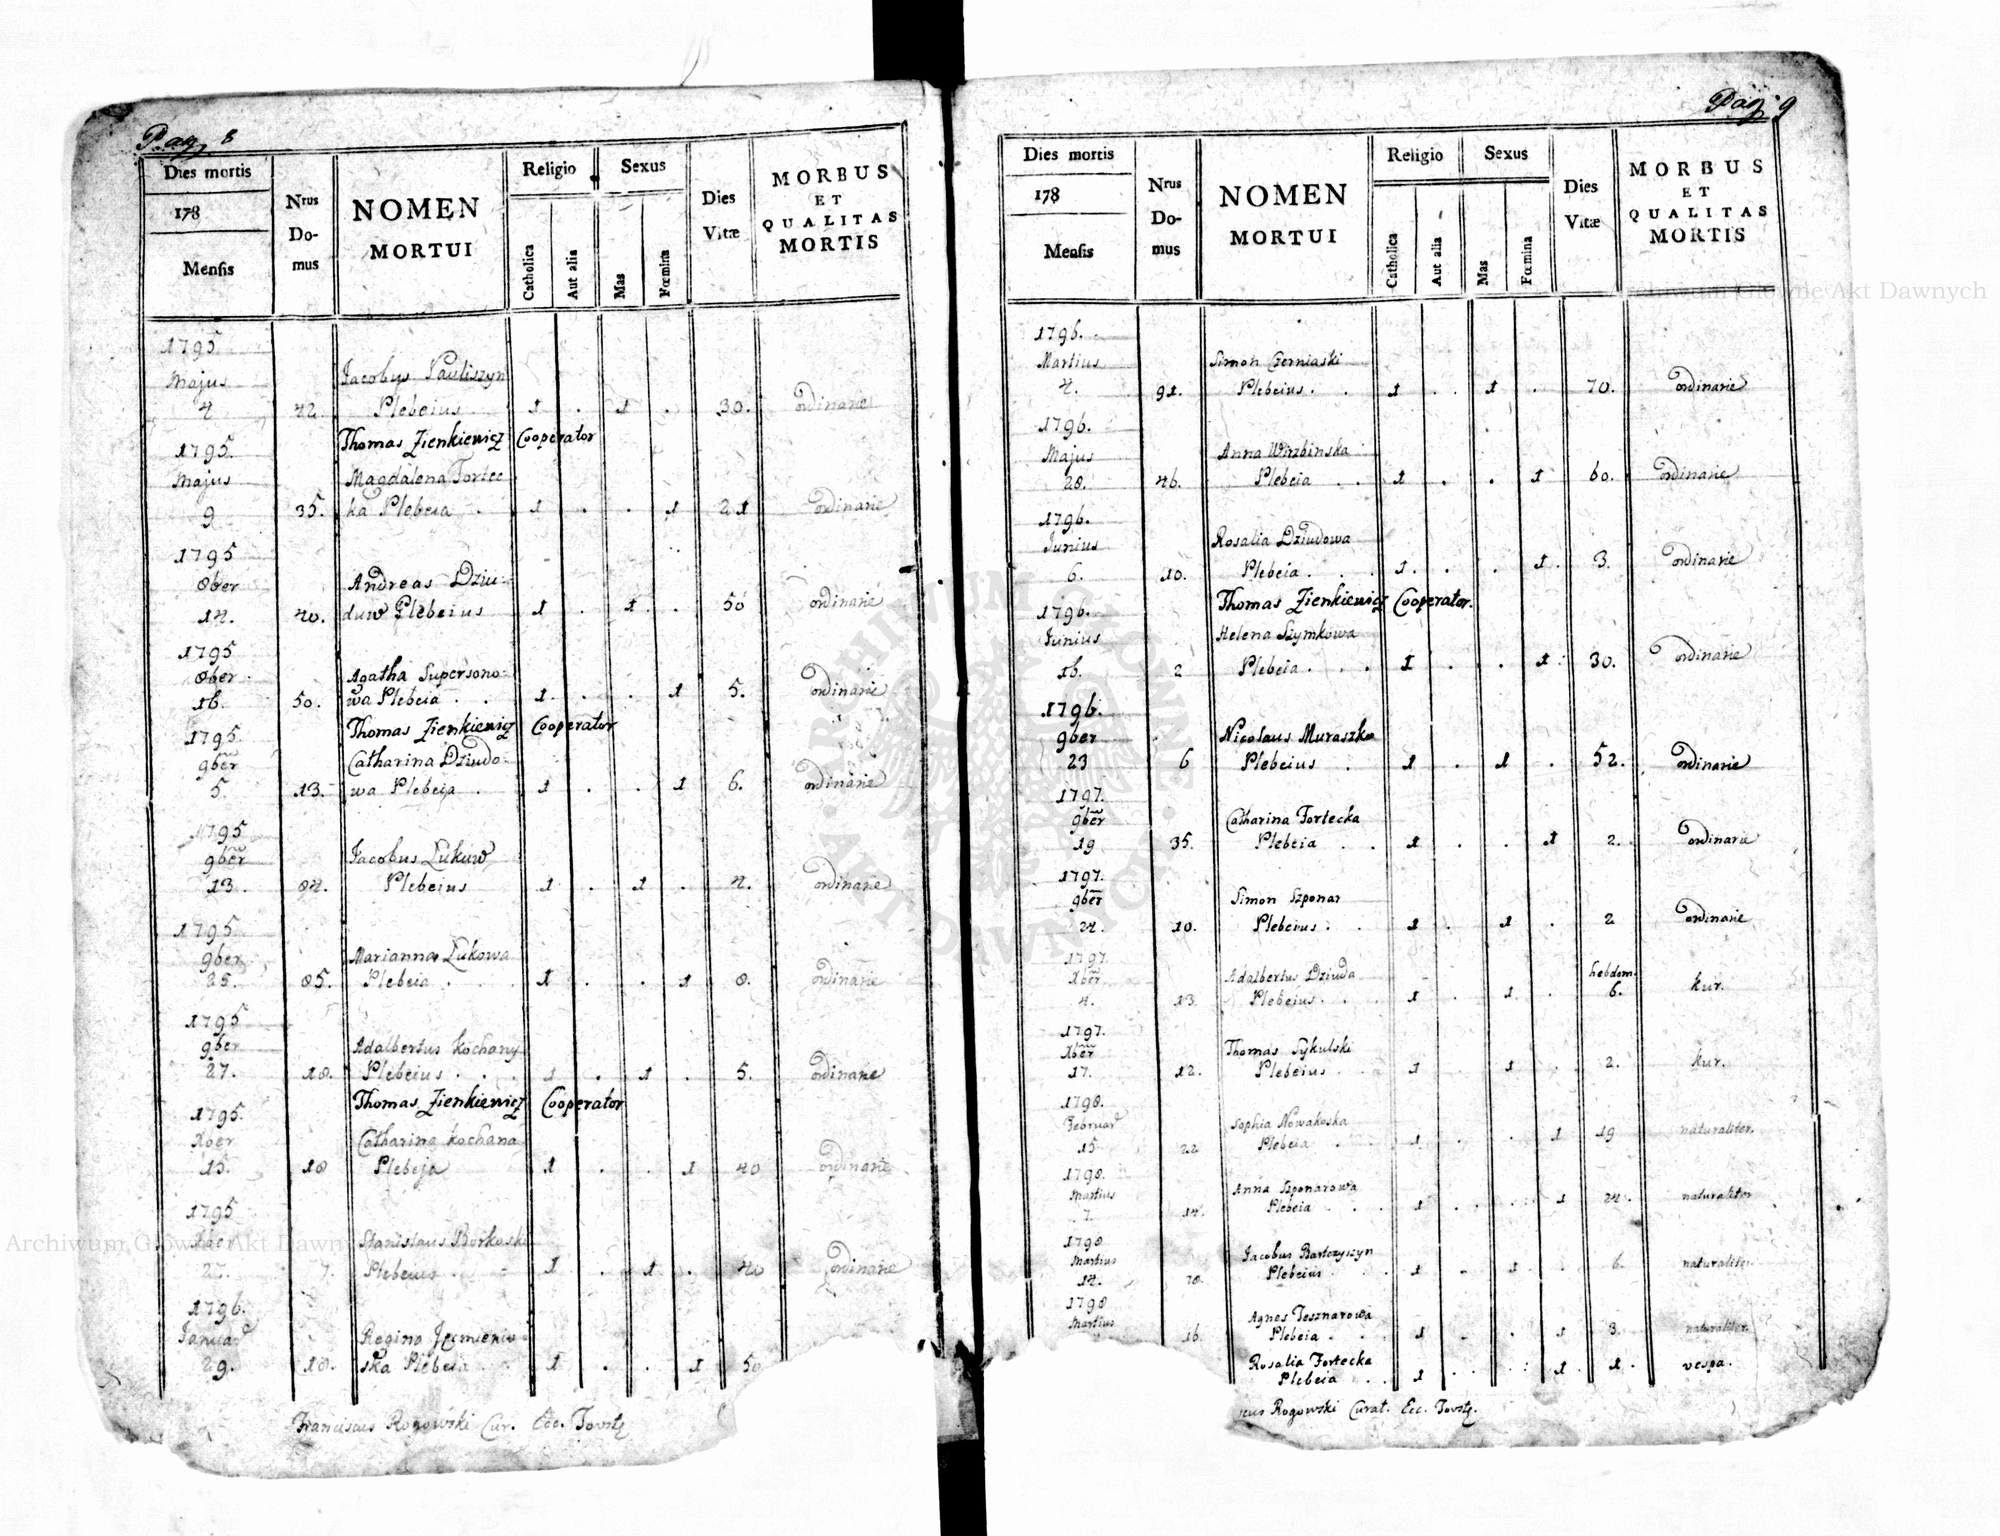 Pag. 8
Dies mortis
178
Mensis
Nrus Domus
NOMEN MORTUI
Religio
Catholica
Aut alia
Sexus
Mas
Fœmina
Dies Vitæ
MORBUS ET QUALITAS MORTIS
1795
Majus Jacobus Pauliszyn
4 42 Plebeius . 1 . 1 . 30. ordinarie
Thomas Zienkiewicz Cooperator
1795.
Majus Magdalena Fortec
9 35. ka Plebeia . 1 . . 1 21 ordinarie
1795
8ber Andreas Dziu-
14. 40. duw Plebeius 1 . 1 . 50 ordinarie
1795
8ber. Agatha Supersono-
16. 50. wa Plebeia . . 1 . . 1 5. ordinarie
Thomas Zienkiewicz Cooperator
1795.
9ber Catharina Dziudo-
5. 13. wa Plebeia . 1 . . 1 6. ordinarie
1795
9ber Jacobus Lukuw
13. 84. Plebeius 1 . 1 . 4. ordinarie
1795
9ber Marianna Lukowa
25. 85. Plebeia . . 1 . . 1 8. ordinarie
1795
9ber Adalbertus Kochany
27. 18. Plebeius . . 1 . 1 . 5. ordinarie
Thomas Zienkiewicz Cooperator
1795.
Xber Catharina Kochana
15. 18 Plebeja 1 . . 1 40 ordinarie
1795
Stanislaus Borkoski
7. Plebeius . 1 . 1 . 40 ordinarie
1796.
Januar Regina Jecmienio-
29. 18. ska Plebeia . 1 . . 1 50
Franciscus Rogowski Cur. Ecc. Tovstę
Pag. 9
Dies mortis
178
Mensis
Nrus Domus
NOMEN MORTUI
Religio
Catholica
Aut alia
Sexus
Mas
Fœmina
Dies Vitæ
MORBUS ET QUALITAS MORTIS
1796.
Martius Simon Czerniaski
4. 91. Plebeius . . 1 . 1 . 70. ordinarie
1796.
Majus Anna Wirzbinska
28. 46. Plebeia . . 1 . . 1 60. ordinarie
1796.
Junius Rosalia Dziudowa
6. 10. Plebeia . . 1 . . 1 3. ordinarie
Thomas Zienkiewicz Cooperator.
1796.
Junius Helena Szymkowa
16. 2 Plebeia . . 1 . . 1 30. ordinarie
1796.
9ber Nicolaus Muraszko
23 6 Plebeius . 1 . 1 . 52. ordinarie
1797.
9ber Catharina Fortecka
19 35. Plebeia . . 1 . . 1 2. ordinarie
1797.
9ber Simon Szponar
24. 10. Plebeius . . 1 . 1 . 2 ordinarie
1797.
Xber Adalbertus Dziuda hebdom.
4. 13. Plebeius . . 1 . 1 . 6. kur.
1797.
Xber Thomas Sykulski
17. 12. Plebeius . 1 . 1 . 2. kur.
1798.
Februar Sophia Nowakoska
15 22 Plebeia . 1 . . 1 19 naturaliter.
1798.
Martius Anna Szponarowa
7. 14. Plebeia . 1 . . 1 24. naturaliter
1798
Martius Jacobus Bartczyszyn
14. 78. Plebeius . 1 . 1 . 6. naturaliter.
1798
Martius Agnes Tesznarowa
16. Plebeia . . 1 . . 1 3. naturaliter.
Rosalia Fortecka
Plebeia . . 1 . . 1 1. vespa.
cus Rogowski Curat. Ecc. Tovstę.
Archiwum Główne Akt Dawnych
Archiwum Główne Akt Dawnych
ARCHIWUM GŁÓWNE AKT DAWNYCH